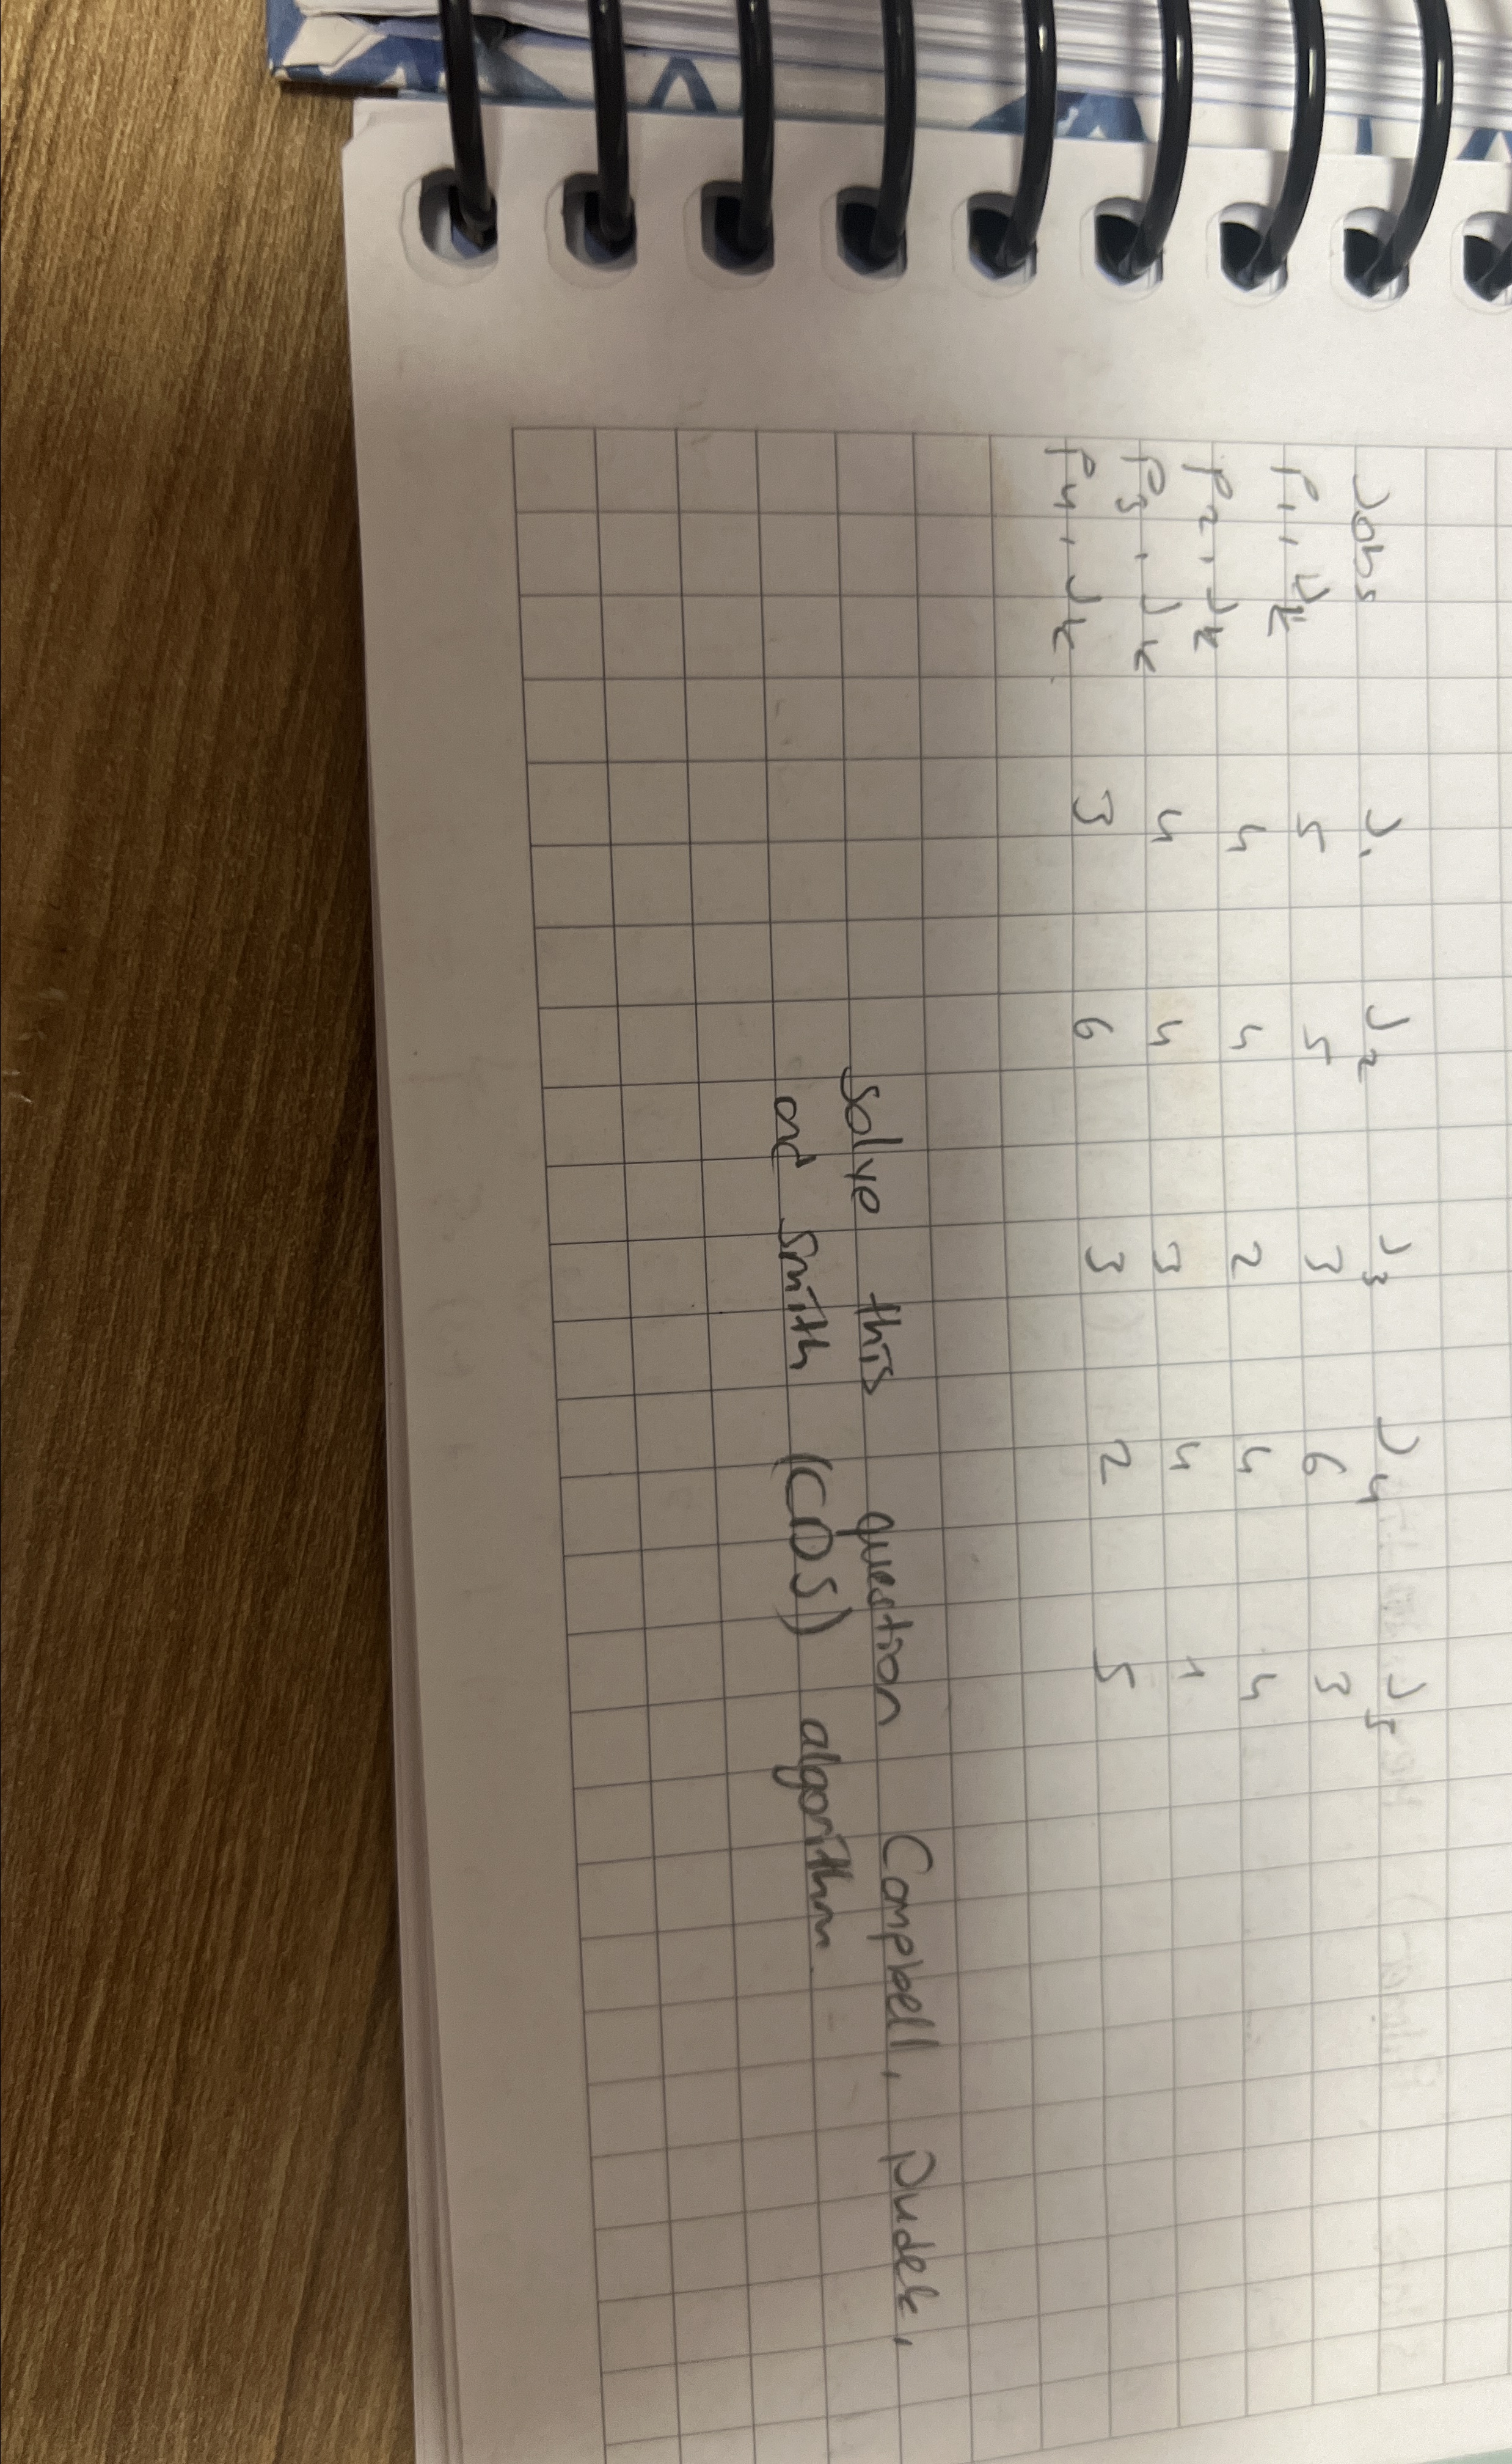 Jobs J1 J2 J3 J4 J5
P1,Jk 5 5 3 6 3
P2,Jk 4 4 2 4 4
P3,Jk 4 4 3 4 1
P4,Jk 3 6 3 2 5
Solve this question Compbell, Dudek,
and Smith (CDS) algorithm.